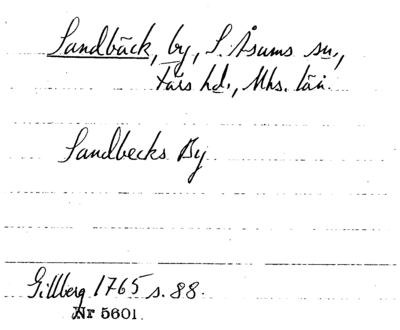 Sandbäck, by, S. Åsums sn.,
Färs hd., Mhs. län.
Sandbecks By
Gillberg 1765 s. 88.
Nr 5601.